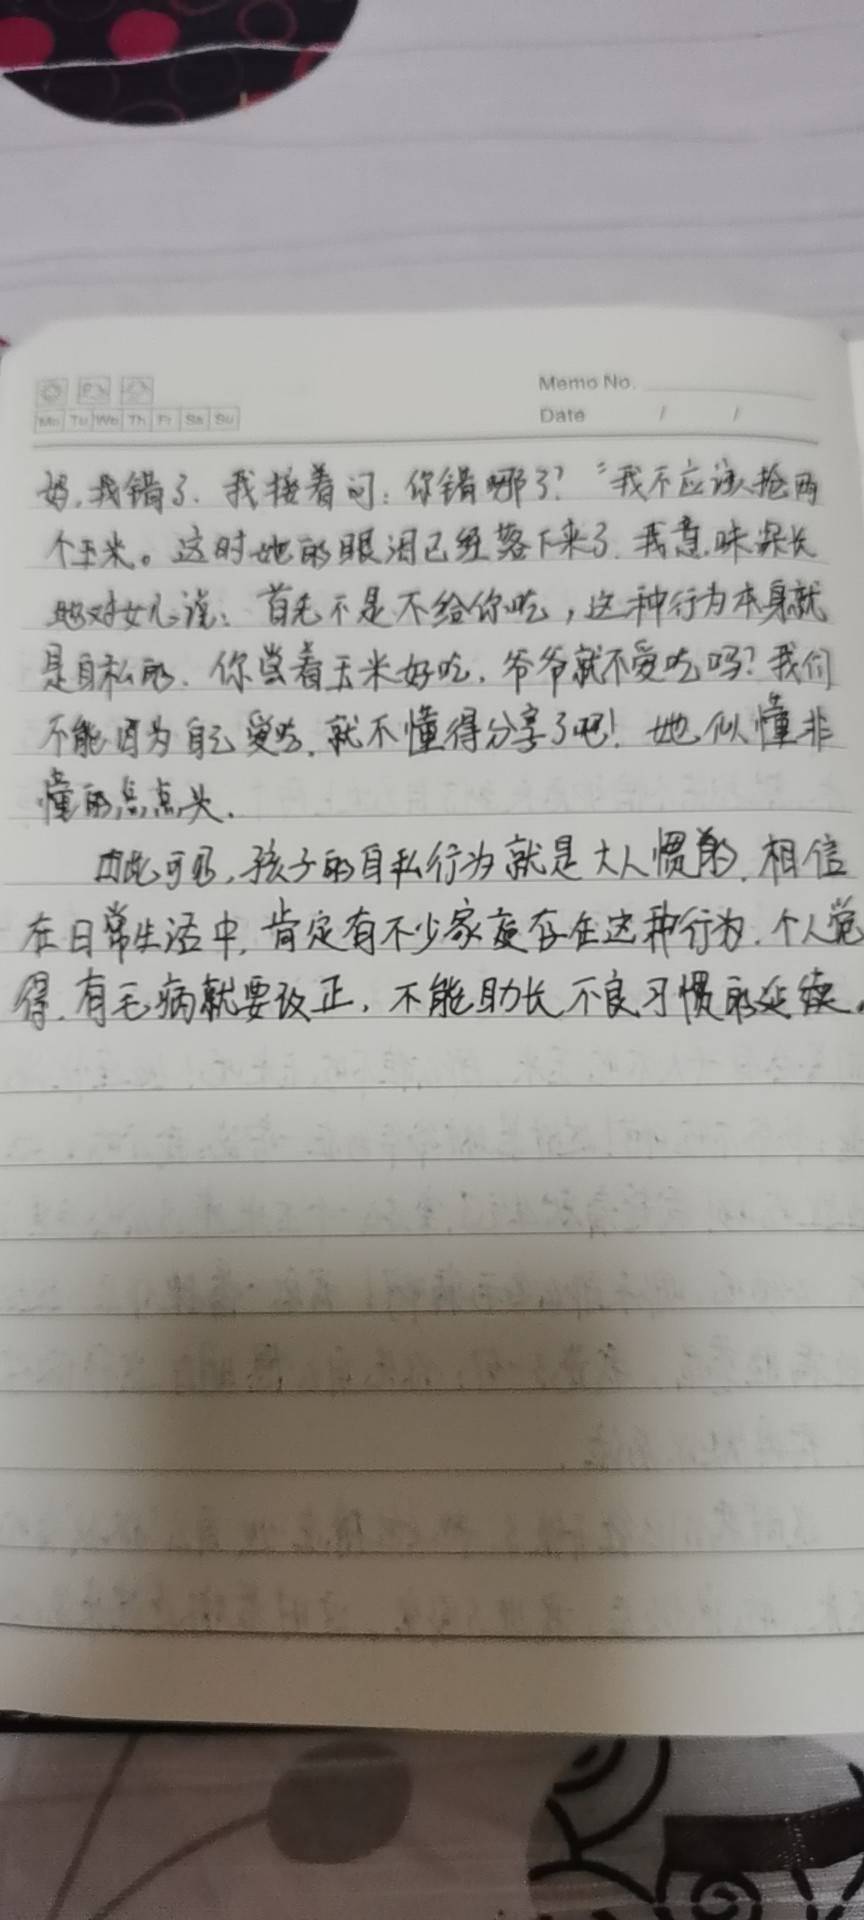 Memo No.
Mo Tu We Th Fr Sa Su
Date / /
妈,我错了.我接着问:你错哪了?“我不应该抢两
个玉米。这时她的眼泪已经落下来了.我意味深长
地对女儿说:首先不是不给你吃,这种行为本身就
是自私的.你尝着玉米好吃.爷爷就不爱吃吗?我们
不能因为自己爱吃.就不懂得分享了吧!她似懂非
懂的点点头.
由此可见,孩子的自私行为就是大人惯的.相信
在日常生活中,肯定有不少家庭存在这种行为.个人觉
得.有毛病就要改正,不能助长不良习惯的延续.